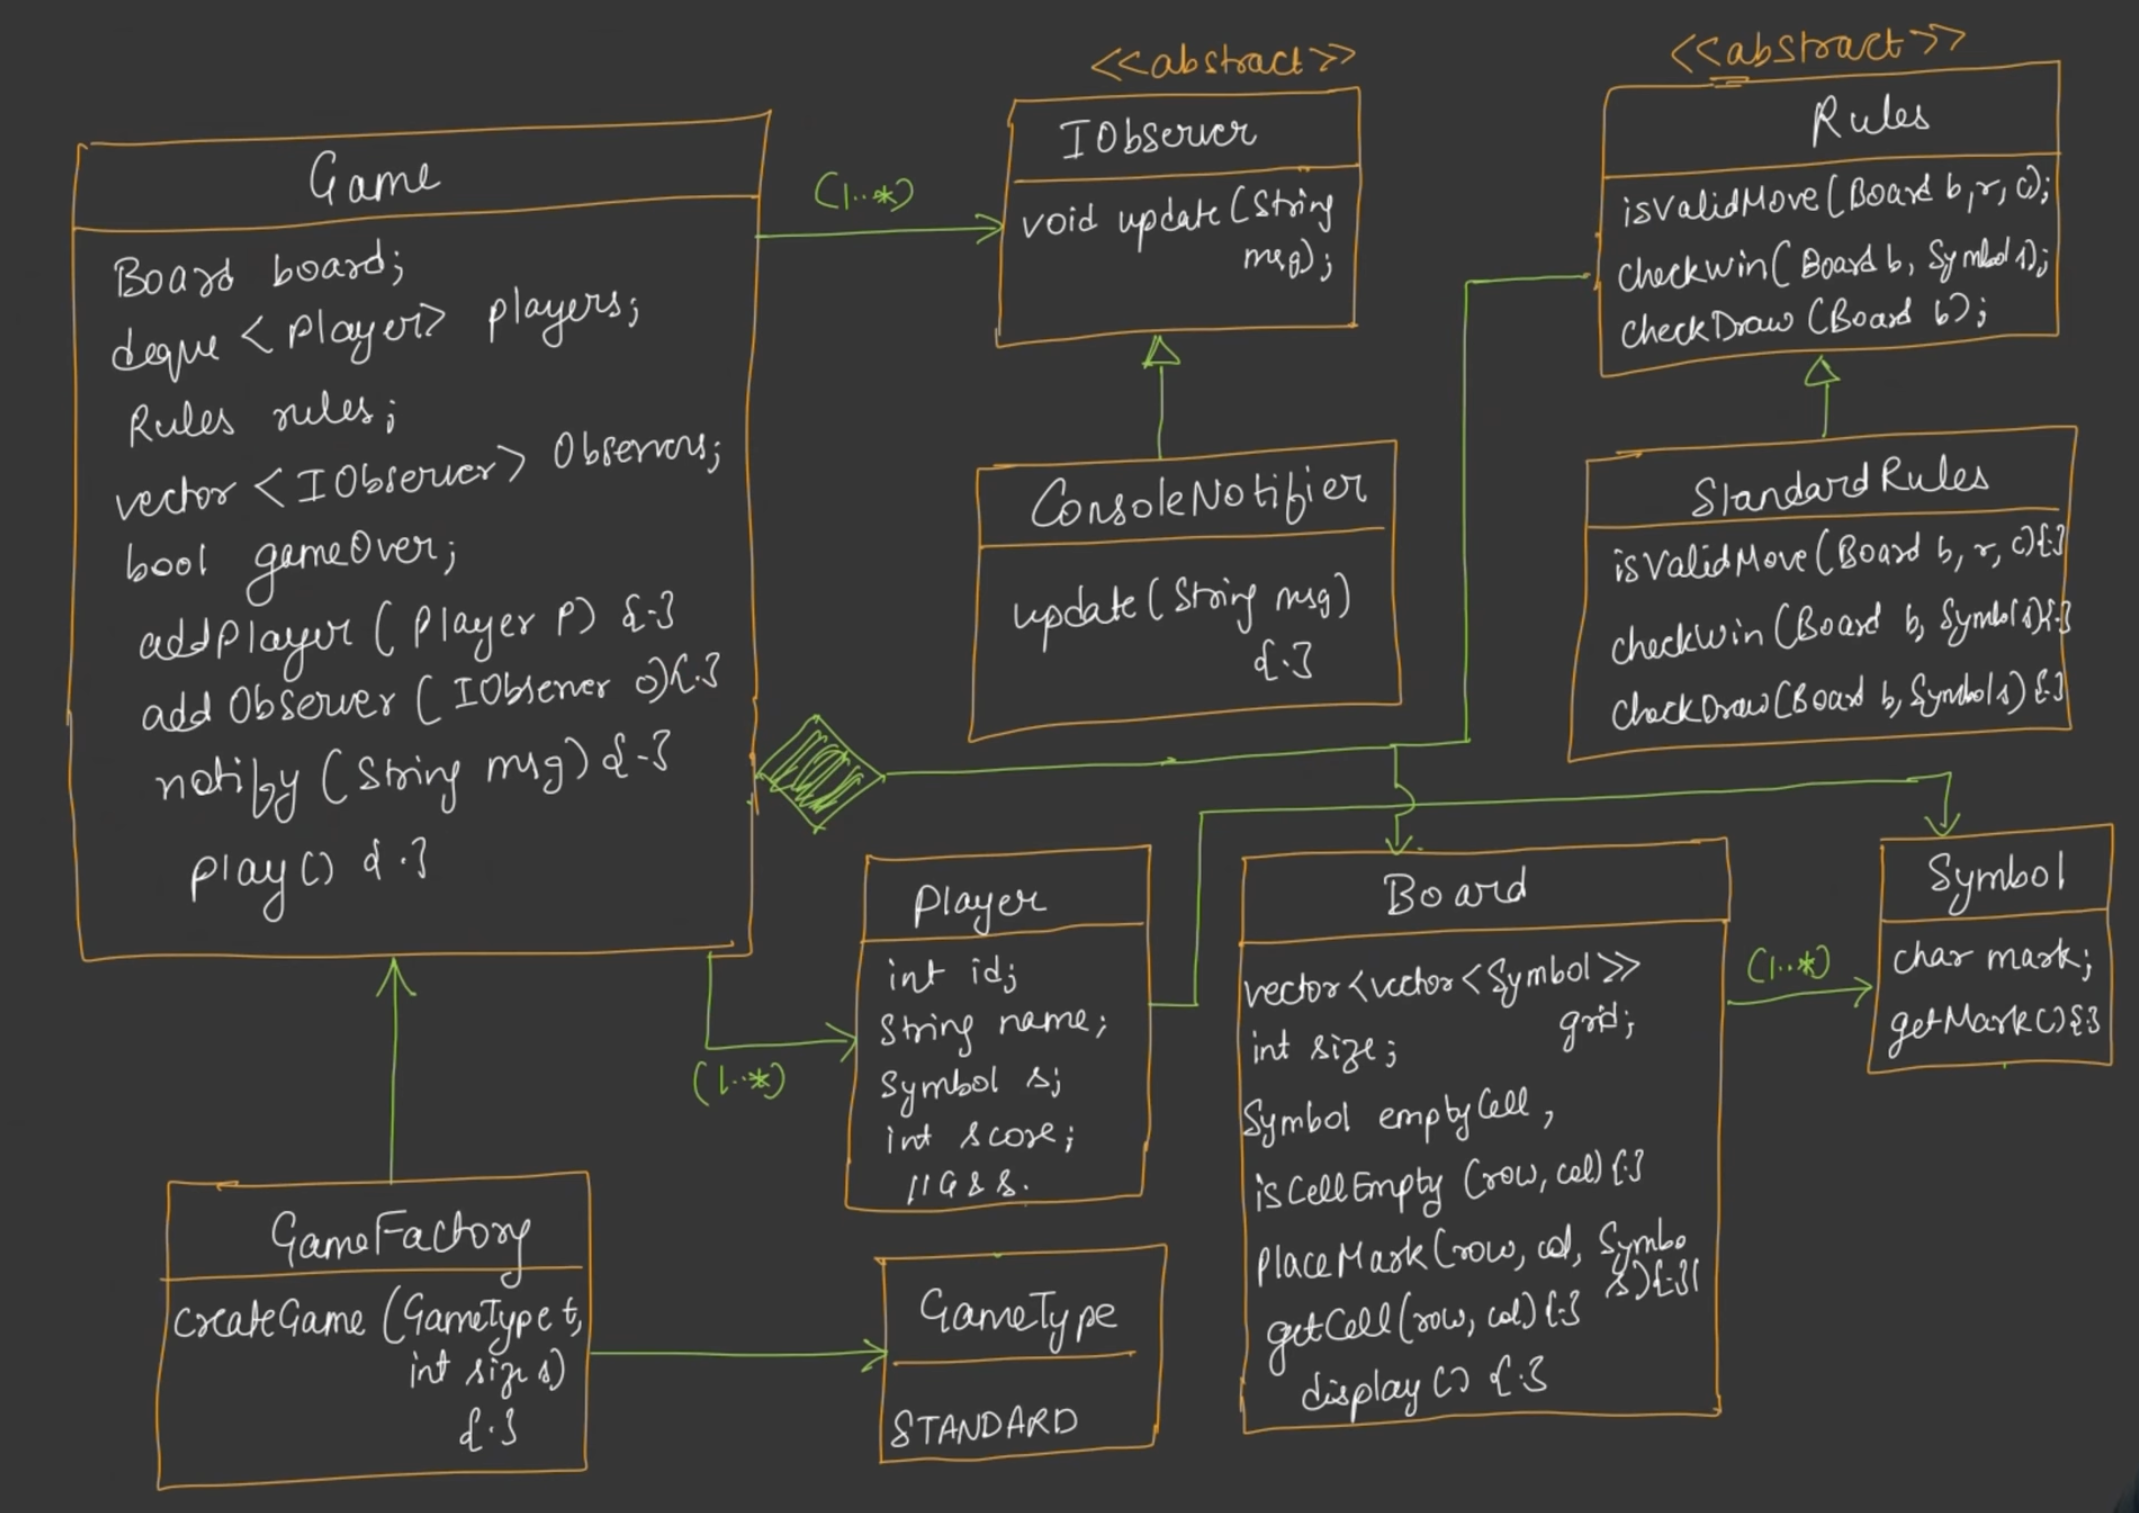 Game
Board board;
deque <Player> players;
Rules rules;
vector <IObserver> Observers;
bool gameOver;
addPlayer (Player P) {.}
add Observer (IObserver o){.}
notify (String msg) {.}
play() {.}
(1..*)
<<abstract>>
IObserver
void update (String
msg);
ConsoleNotifier
update (String msg)
{.}
<<abstract>>
Rules
isValidMove (Board b, r, c);
checkWin( Board b, Symbol s);
checkDraw (Board b);
StandardRules
isValidMove (Board b, r, c){.}
checkWin (Board b, Symbol s){.}
checkDraw (Board b, Symbol s) {.}
(1..*)
Player
int id;
String name;
Symbol s;
int score;
//G & S.
Board
vector<vector<Symbol>>
grid;
int size;
Symbol emptyCell,
isCellEmpty (row, col) {.}
placeMark (row, col, Symbo
s){.}
getCell (row, col) {.}
display () {.}
(1..*)
Symbol
char mark;
getMark() {.}
GameFactory
createGame (GameType t,
int size s)
{.}
GameType
STANDARD